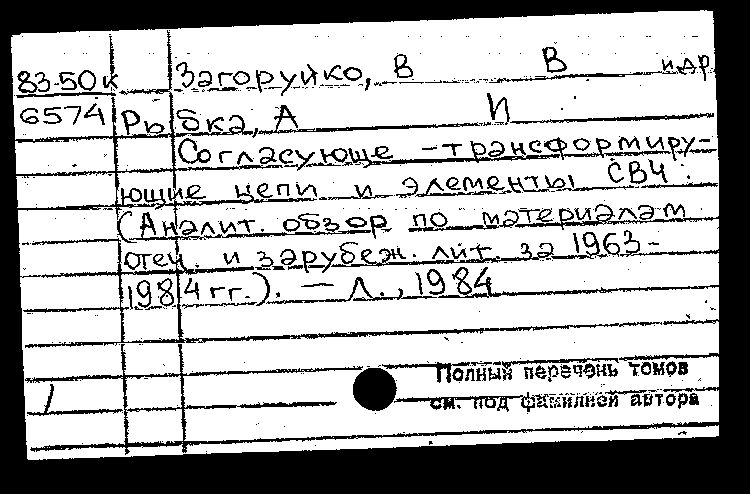 83-50к Загоруйко, В В и др
6574 Рыбка, А И
Согласующе-трансформиру-
ющие цепи и элементы СВЧ.
(Аналит. обзор по материалам
отеч. и зарубеж. лит. за 1963-
1984 гг.). — Л., 1984
Полный перечень томов
см. под фамилией автора